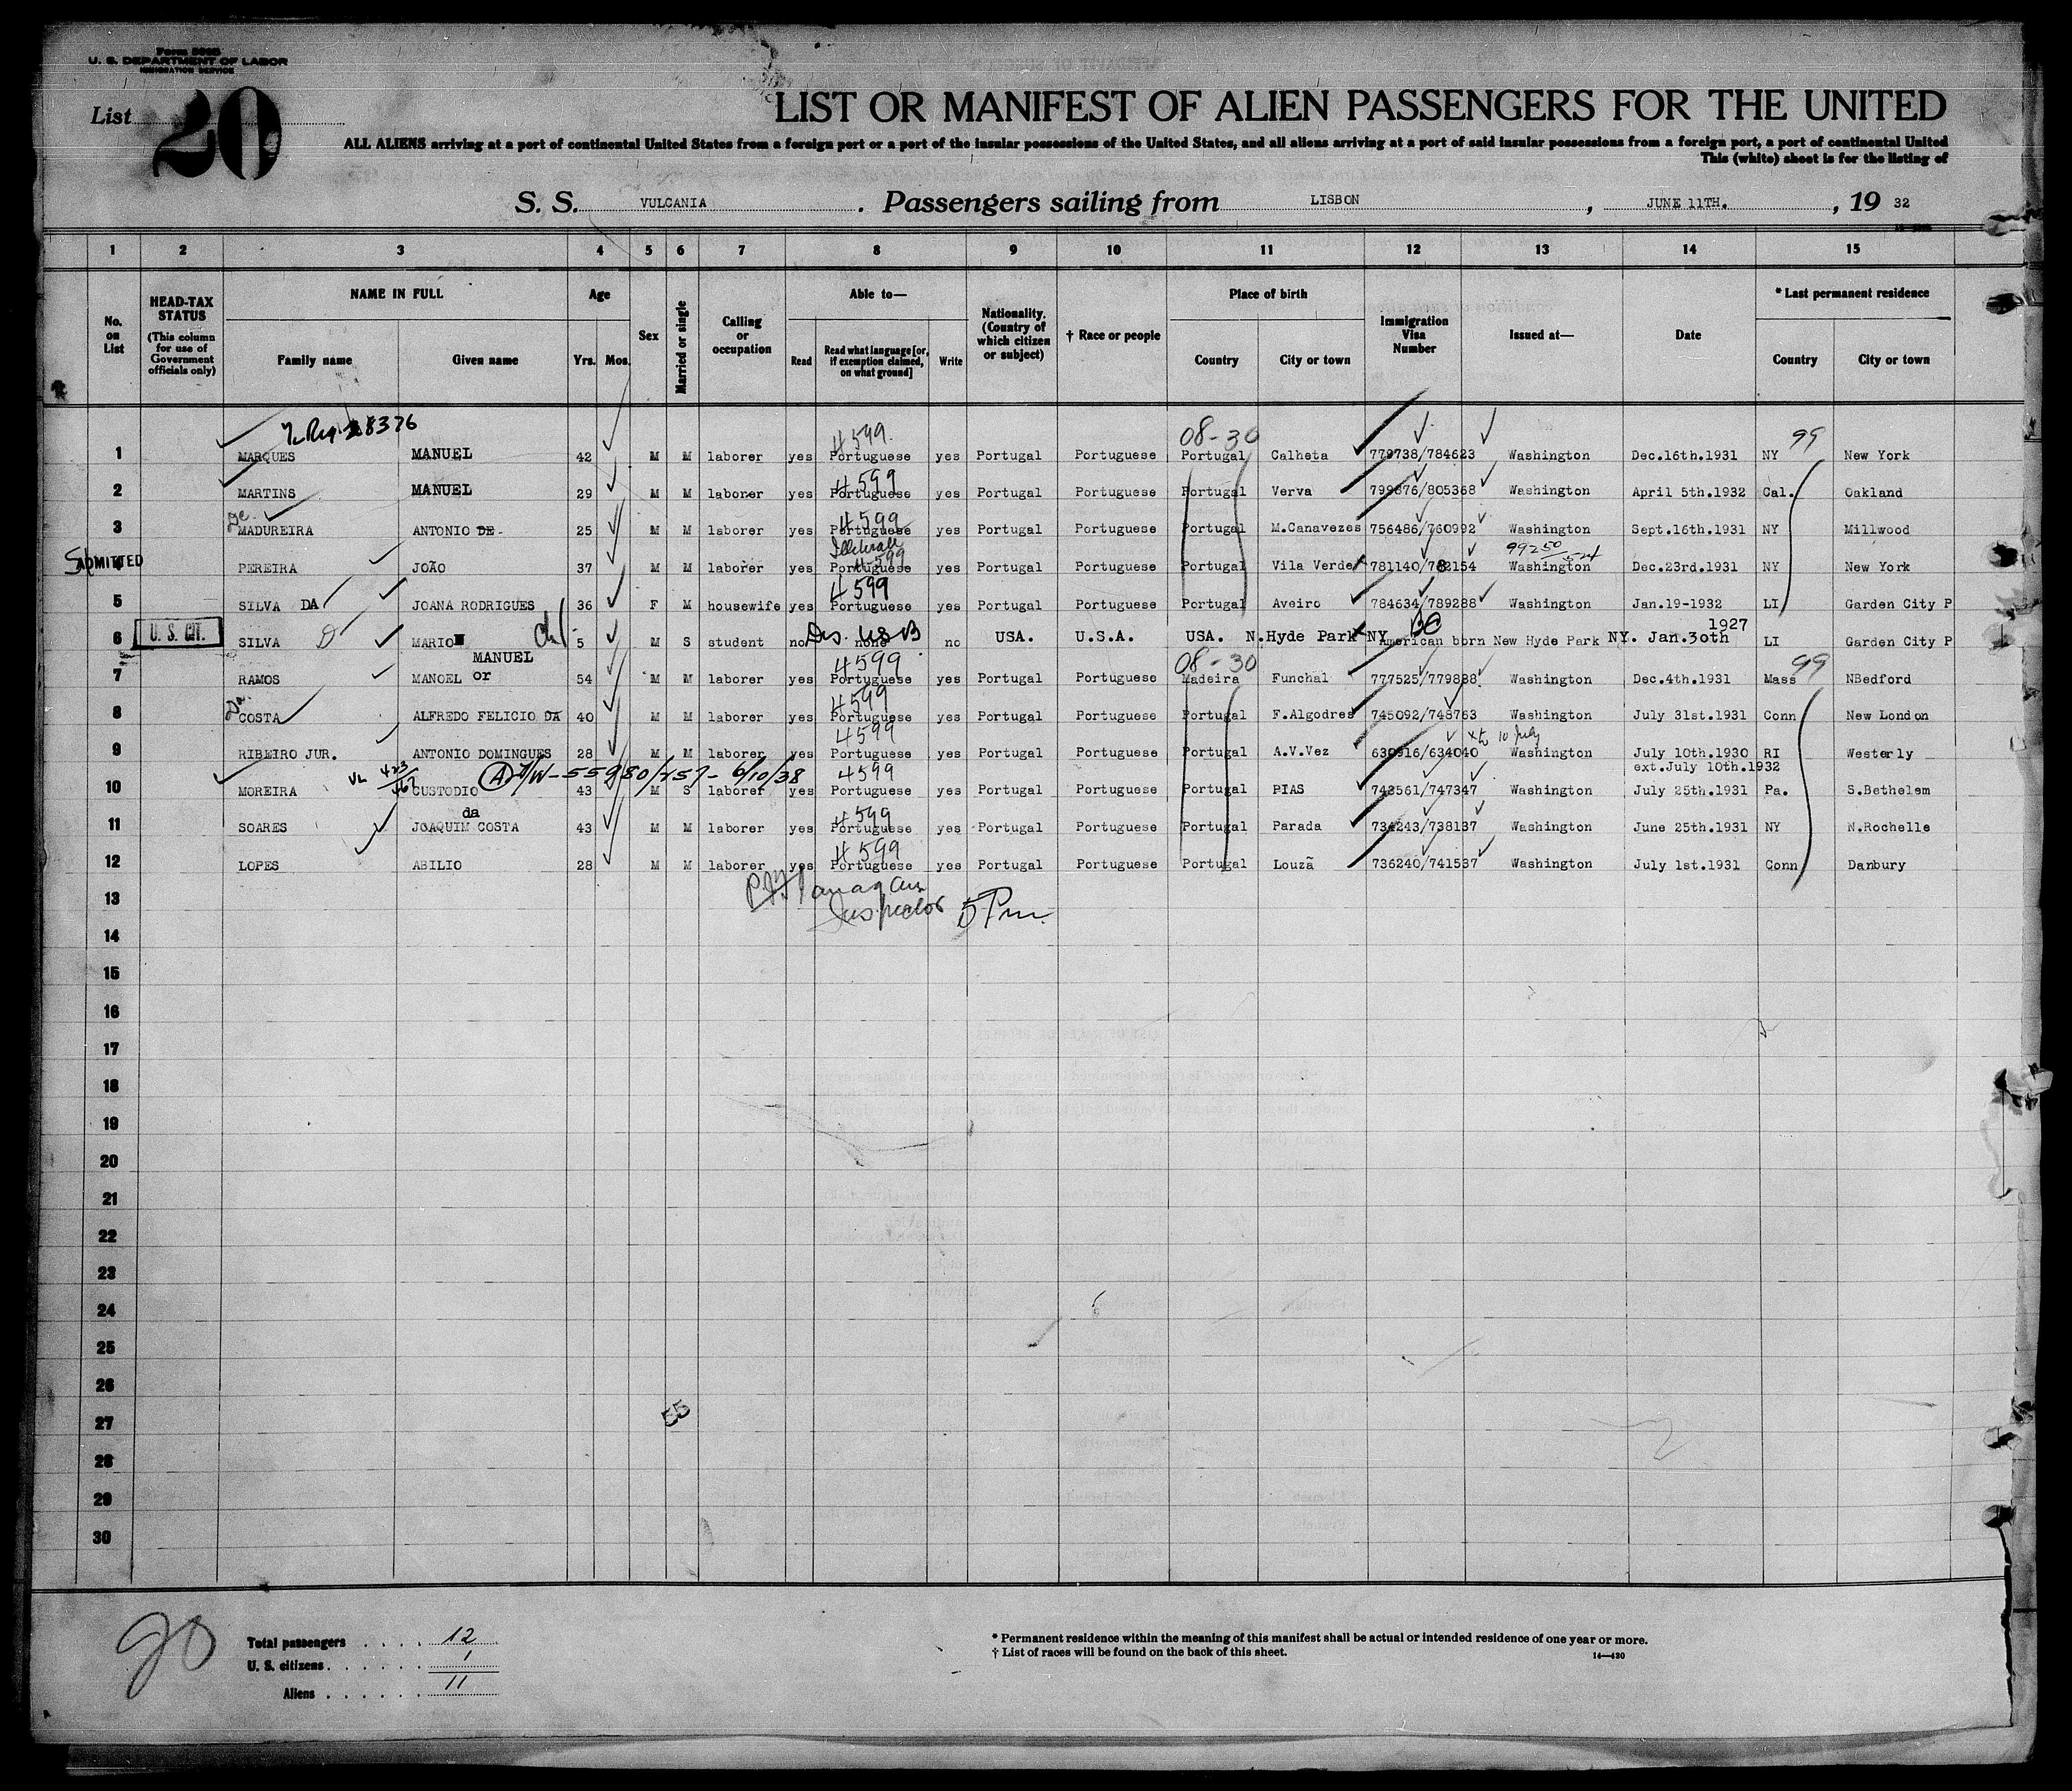 Form 500B
U. S. DEPARTMENT OF LABOR
IMMIGRATION SERVICE
List 20
LIST OR MANIFEST OF ALIEN PASSENGERS FOR THE UNITED
ALL ALIENS arriving at a port of continental United States from a foreign port or a port of the insular possessions of the United States, and all aliens arriving at a port of said insular possessions from a foreign port, a port of continental United
This (white) sheet is for the listing of
S. S. VULCANIA . Passengers sailing from LISBON , JUNE 11TH. , 19 32
1 2 3 4 5 6 7 8 9 10 11 12 13 14 15
No. on List
HEAD-TAX STATUS (This column for use of Government officials only)
NAME IN FULL Family name Given name
Age Yrs. Mos.
Sex
Married or single
Calling or occupation
Able to— Read Read what language [or, if exemption claimed, on what ground] Write
Nationality. (Country of which citizen or subject)
† Race or people
Place of birth Country City or town
Immigration Visa Number
Issued at—
Date
* Last permanent residence Country City or town
28376 4599 08-30 99
1 MARQUES MANUEL 42 M M laborer yes Portuguese yes Portugal Portuguese Portugal Calheta 779738/784623 Washington Dec.16th.1931 NY New York
4599
2 MARTINS MANUEL 29 M M laboner yes Portuguese yes Portugal Portuguese Portugal Verva 799676/805368 Washington April 5th.1932 Cal. Oakland
de 4599
3 MADUREIRA ANTONIO DE- 25 M M laborer yes Portuguese yes Portugal Portuguese Portugal M.Canavezes 756486/760992 Washington Sept.16th.1931 NY Millwood
ADMITTED 4599 99250
4 PEREIRA JOÃO 37 M M laborer yes Portuguese yes Portugal Portuguese Portugal Vila Verde 781140/782154 Washington Dec.23rd.1931 NY New York
4599
5 SILVA DA JOANA RODRIGUES 36 F M housewife yes Portuguese yes Portugal Portuguese Portugal Aveiro 784634/789288 Washington Jan.19-1932 LI Garden City P
1927
6 U. S. CIT. SILVA D MARIO 5 M S student no none no USA. U.S.A. USA. N.Hyde Park NY American born New Hyde Park NY. Jan.30th LI Garden City P
MANUEL 4599 08-30 99
7 RAMOS MANOEL or 54 M M laborer yes Portuguese yes Portugal Portuguese Madeira Funchal 777525/779888 Washington Dec.4th.1931 Mass NBedford
Da 4599
8 COSTA ALFREDO FELICIO DA 40 M M laborer yes Portuguese yes Portugal Portuguese Portugal F.Algodres 745092/748763 Washington July 31st.1931 Conn New London
4599 10 July
9 RIBEIRO JUR. ANTONIO DOMINGUES 28 M M laborer yes Portuguese yes Portugal Portuguese Portugal A.V.Vez 630916/634040 Washington July 10th.1930 RI Westerly
ext.July 10th.1932
VL 423 55980/257- 6/10/38 4599
10 MOREIRA CUSTODIO 43 M S laborer yes Portuguese yes Portugal Portuguese Portugal PIAS 743561/747347 Washington July 25th.1931 Pa. S.Bethelem
da 4599
11 SOARES JOAQUIM COSTA 43 M M laborer yes Portuguese yes Portugal Portuguese Portugal Parada 734243/738137 Washington June 25th.1931 NY N.Rochelle
4599
12 LOPES ABILIO 28 M M laborer yes Portuguese yes Portugal Portuguese Portugal Louzã 736240/741537 Washington July 1st.1931 Conn Danbury
13
Inspector 5 Pm.
14
15
16
17
18
19
20
21
22
23
24
25
26
27 55
28
29
30
20
Total passengers . . . . 12
U. S. citizens . . . . . . 1
Aliens . . . . . . 11
* Permanent residence within the meaning of this manifest shall be actual or intended residence of one year or more.
† List of races will be found on the back of this sheet.
14—420